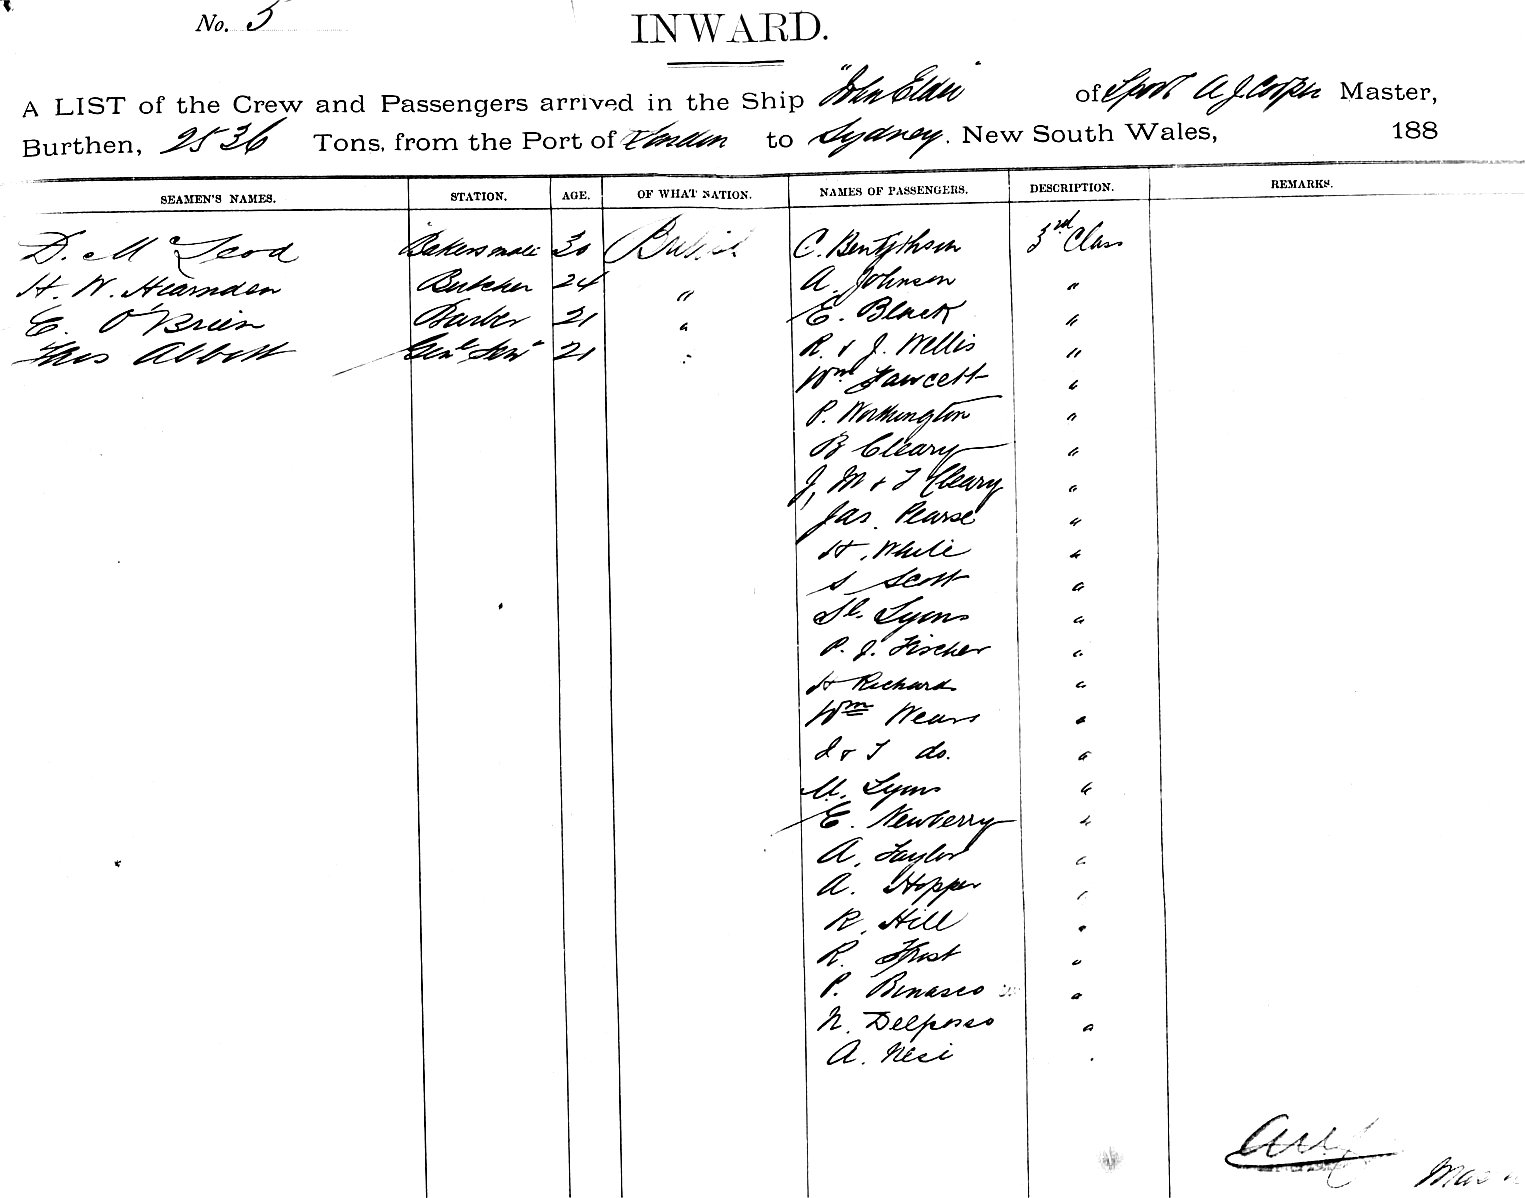 No. 5
INWARD.
A LIST of the Crew and Passengers arrived in the Ship "John Elder" of Lpool A J Cooper Master,
Burthen, 2536 Tons, from the Port of London to Sydney. New South Wales, 188
SEAMEN'S NAMES. STATION. AGE. OF WHAT NATION. NAMES OF PASSENGERS. DESCRIPTION. REMARKS.
D. McLeod Bakers mate 30 British C. 3rd Class
H. W. Hearnden Butcher 24 " A. Johnson "
E. O'Brien Barber 21 " E. Black "
Thos Abbott Genl Servt 21 " R. & J. Wellis "
Wm Fawcett "
P. Worthington "
B Cleary "
J, M & T Cleary "
Jas. Pearse "
H. White "
S Scott "
Lyons "
P. J. Fischer "
H Richards "
Wm Wears "
J & T do. "
M. Lyons "
E. Newberry "
A. Taylor "
A. Hopper "
R. Hill "
R. "
P. Binasco "
N. Delposso "
A. Nesi "